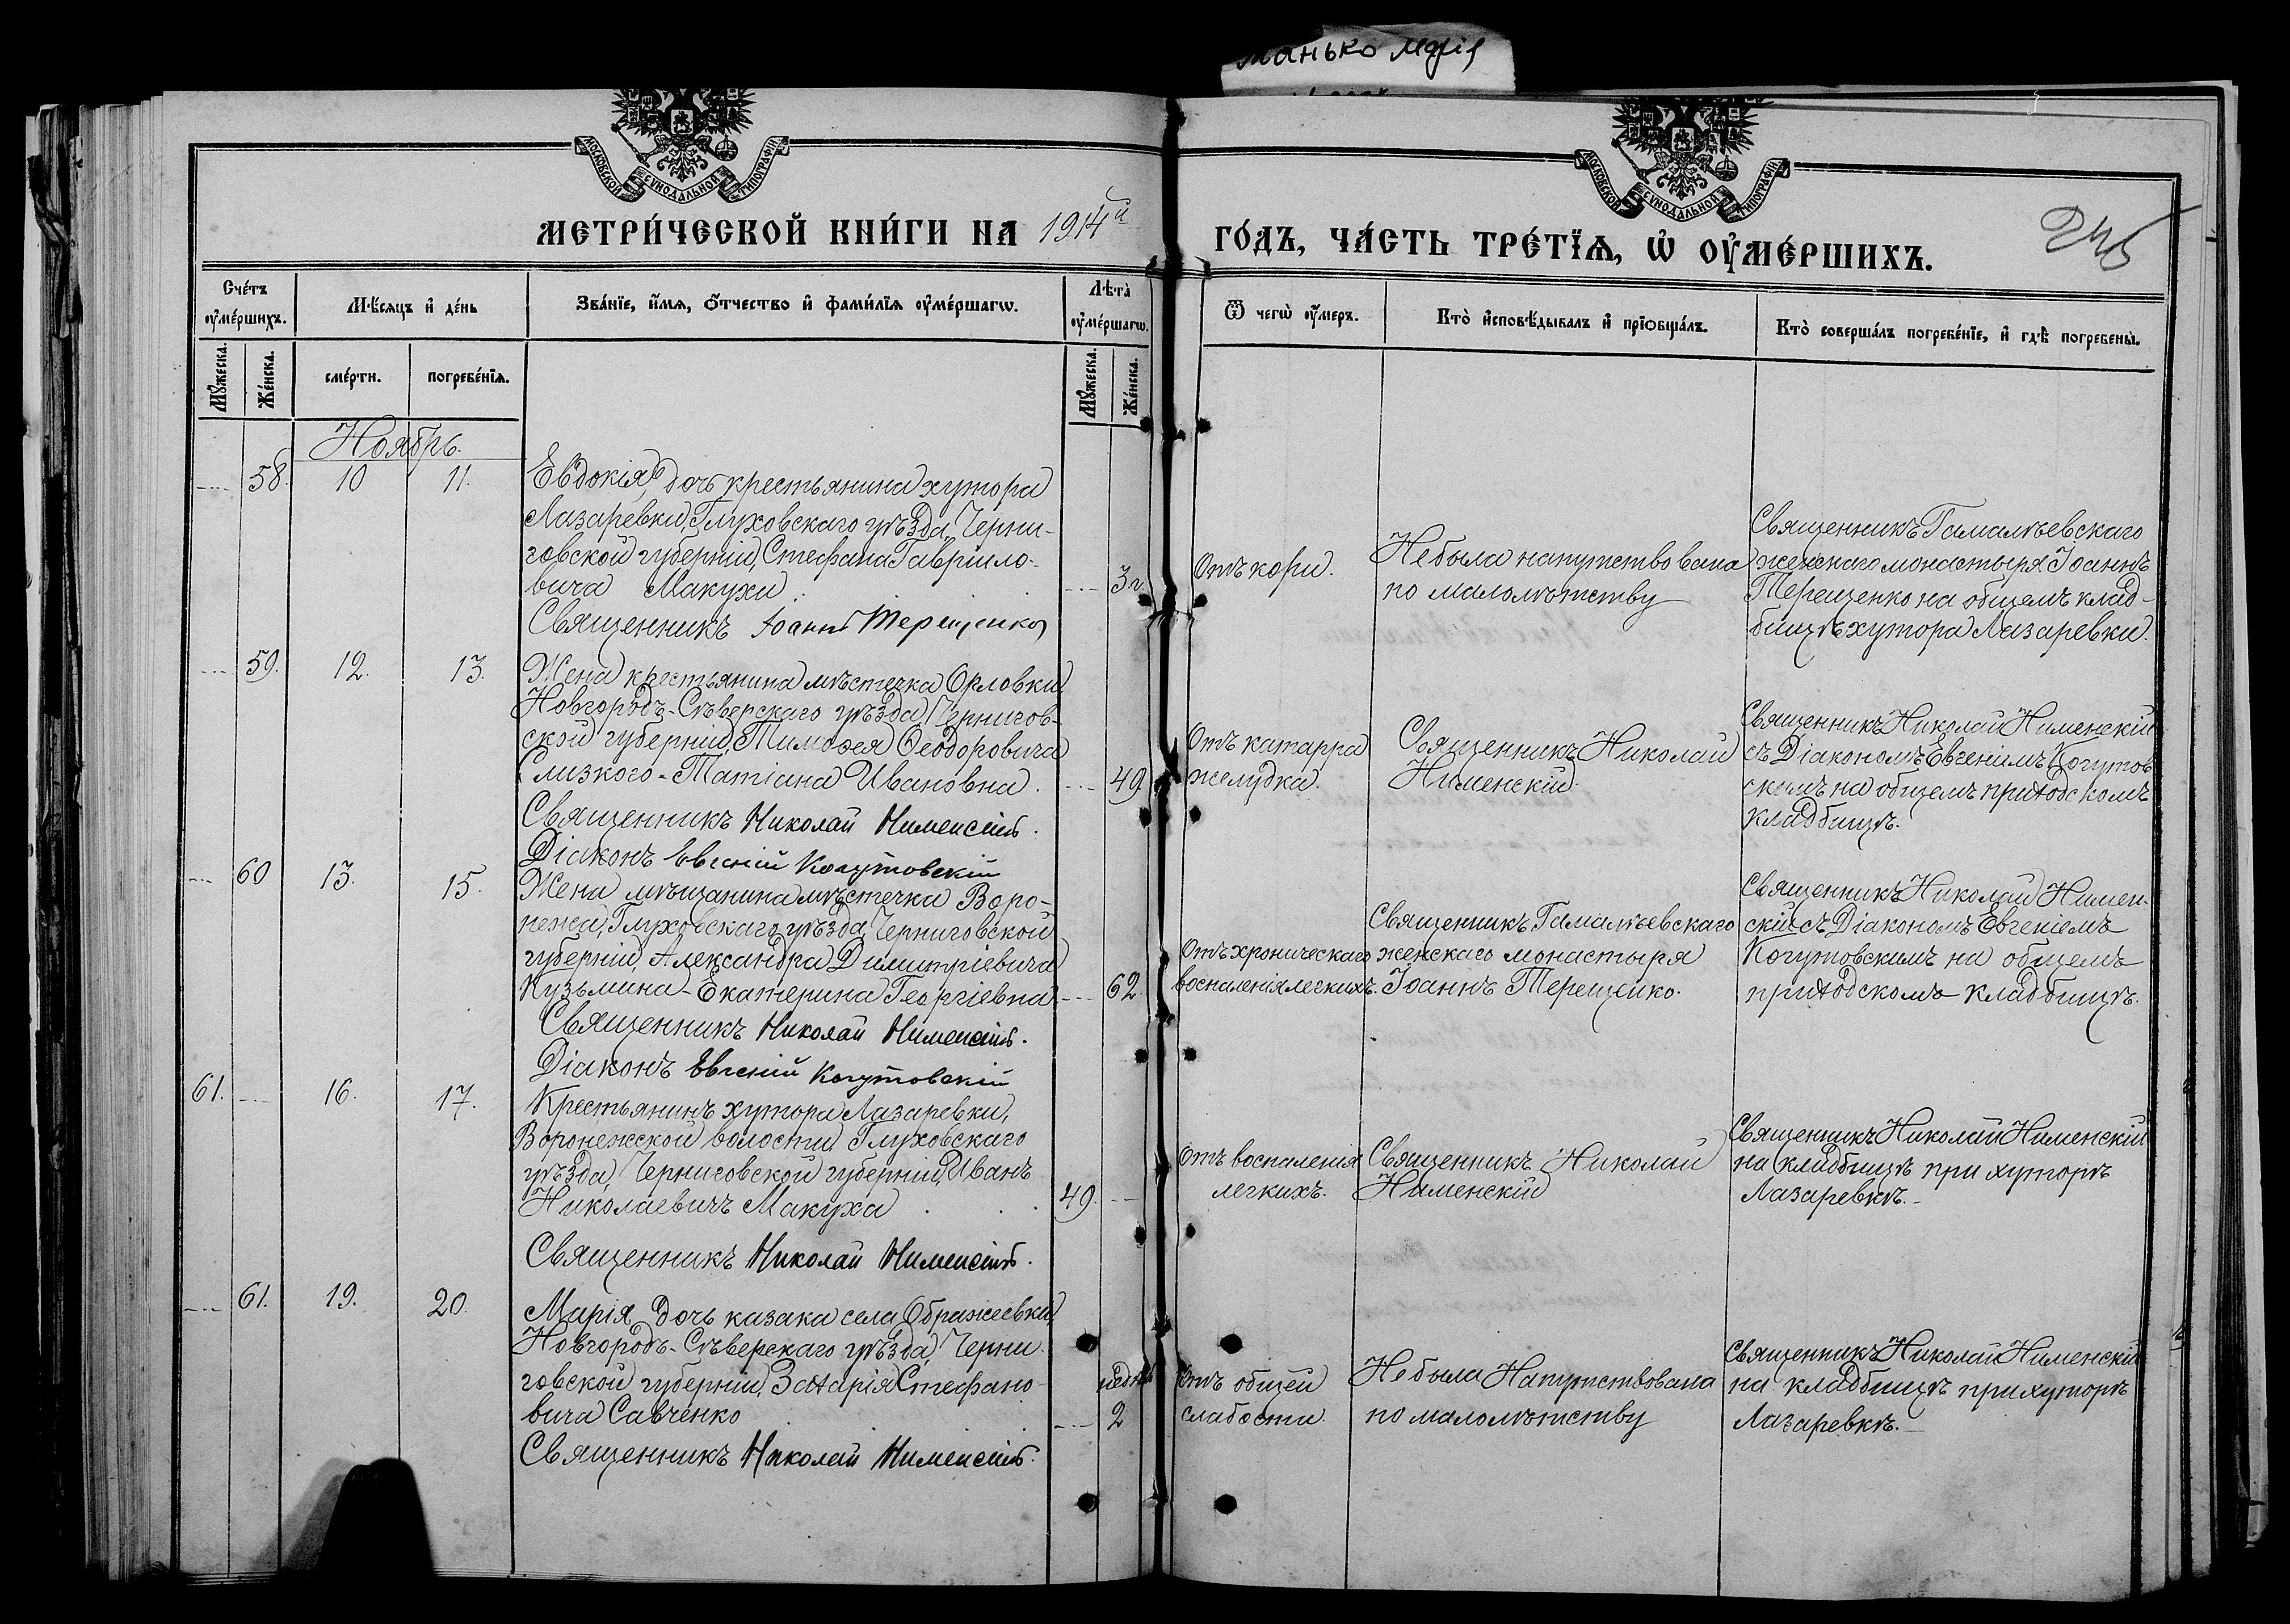 манько марія
МОСКОВСКОЙ СѴНОДАЛЬНОЙ ТИПОГРАФІИ
МОСКОВСКОЙ СѴНОДАЛЬНОЙ ТИПОГРАФІИ
МЕТРИ́ЧЕСКОЙ КНИ́ГИ НА 1914й
ГО́ДЪ, ЧА́СТЬ ТРЕ́ТЇѦ, Ѡ҆ ОУ҆МЕ́РШИХЪ.
245
Сче́тъ оу҆ме́ршихъ.
Мѣ́сѧцъ и҆ де́нь
Зва́нїе, и҆́мѧ, ѻ҆́тчество и҆ фами́лїѧ оу҆ме́ршагѡ.
Лѣ́та̀ оу҆ме́ршагѡ.
Ѿ чегѡ̀ оу҆́меръ.
Кто̀ и҆сповѣ́дывалъ и҆ прїѡбща́лъ.
Кто̀ соверша́лъ погребе́нїе, и҆ гдѣ̀ погребены̀.
Мꙋ́жеска.
Же́нска.
сме́рти.
погребе́нїѧ.
Мꙋ́жеска.
Же́нска.
Ноябрь.
58.
10
11.
Евдокія, дочь крестьянина хутора
Лазаревки, Глуховскаго уѣзда, Черни-
говской губерніи, Стефана Гаврило-
вича Макухи.
3 г.
Священникъ Іоаннъ Терещенко
Отъ кори.
Не была напутствована
по малолѣтству
Священникъ Гамалѣевскаго
женскаго монастыря Іоаннъ
Терещенко на общемъ клад-
бищѣ хутора Лазаревки.
59.
12.
13.
Жена крестьянина мѣстечка Орловки
Новгородъ-Сѣверскаго уѣзда, Чернигов-
ской губерніи, Тимофея Ѳеодоровича
Слизкого - Татіана Ивановна.
49
Священникъ Николай Нименскій.
Діаконъ Евгеній Когутовскій
Отъ катарра
желудка.
Священникъ Николай
Нименскій
Священникъ Николай Нименскій
съ Діакономъ Евгеніемъ Когутов
скимъ на общемъ приходскомъ
кладбищѣ.
60
13.
15.
Жена мѣщанина мѣстечка Воро-
нежа, Глуховскаго уѣзда, Черниговской
губерніи, Александра Димитріевича
Кузьмина - Екатерина Георгіевна
62.
Священникъ Николай Нименскій.
Діаконъ Евгеній Когутовскій
Отъ хроническаго
воспаленія легкихъ.
Священникъ Гамалѣевскаго
женскаго монастыря
Іоаннъ Терещенко.
Священникъ Николай Нимен-
скій съ Діакономъ Евгеніемъ
Когутовскимъ на общемъ
приходскомъ кладбищѣ.
61.
16.
17.
Крестьянинъ хутора Лазаревки,
Воронежской волости, Глуховскаго
уѣзда, Черниговской губерніи, Иванъ
Николаевичъ Макуха
49.
Священникъ Николай Нименскій.
Отъ воспаленія
легкихъ.
Священникъ Николай
Нименскій
Священникъ Николай Нименскій
на кладбищѣ при хуторѣ
Лазаревкѣ.
61.
19.
20.
Марія, дочь казака села Ображеевки
Новгородъ-Сѣверскаго уѣзда, Черни-
говской губерніи, Захарія Стефано-
вича Савченко
недѣли
2
Священникъ Николай Нименскій.
Отъ общей
слабости.
Не была Напутствована
по малолѣтству
Священникъ Николай Нименскій
на кладбищѣ при хуторѣ
Лазаревкѣ.